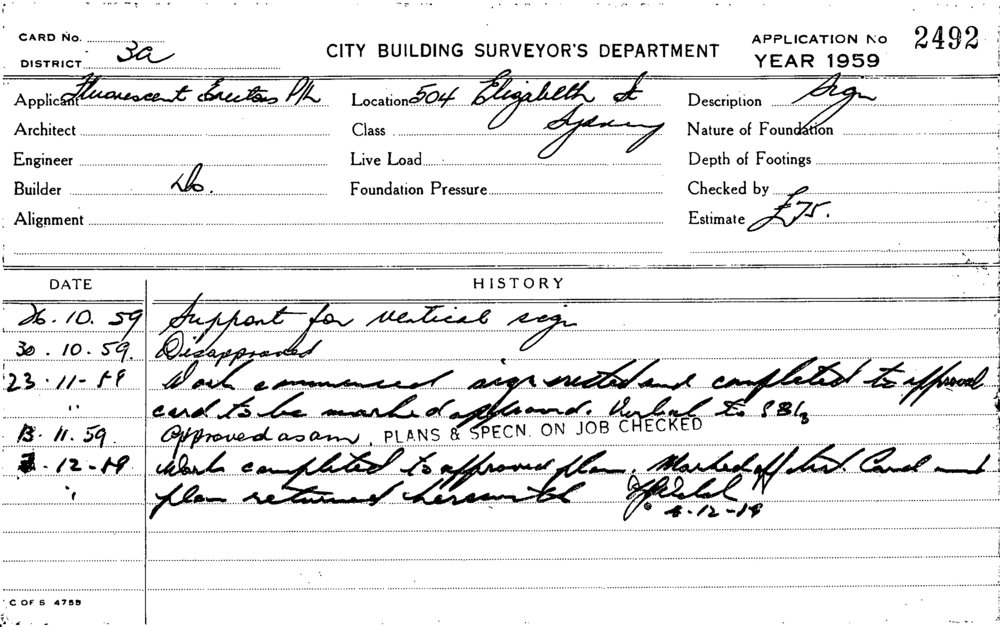 CARD No.
DISTRICT 3a
CITY BUILDING SURVEYOR'S DEPARTMENT
APPLICATION No 2492
YEAR 1959
Applicant Fluorescent Erectors P/L
Location 504 Elizabeth St
Description Sign
Architect
Class Sydney
Nature of Foundation
Engineer
Live Load
Depth of Footings
Builder Do.
Foundation Pressure
Checked by
Alignment
Estimate £75.
DATE
HISTORY
26.10.59 Support for vertical sign
30.10.59. Disapproved
23.11-59 Work commenced sign erected and completed to approval
" card to be marked approved. Verbal to
13.11.59. Approved as am. PLANS & SPECN. ON JOB CHECKED
.12-59 Work completed to approved plan. Marked off list. Card and
" plan returned herewith
.12-59
C OF S 4755